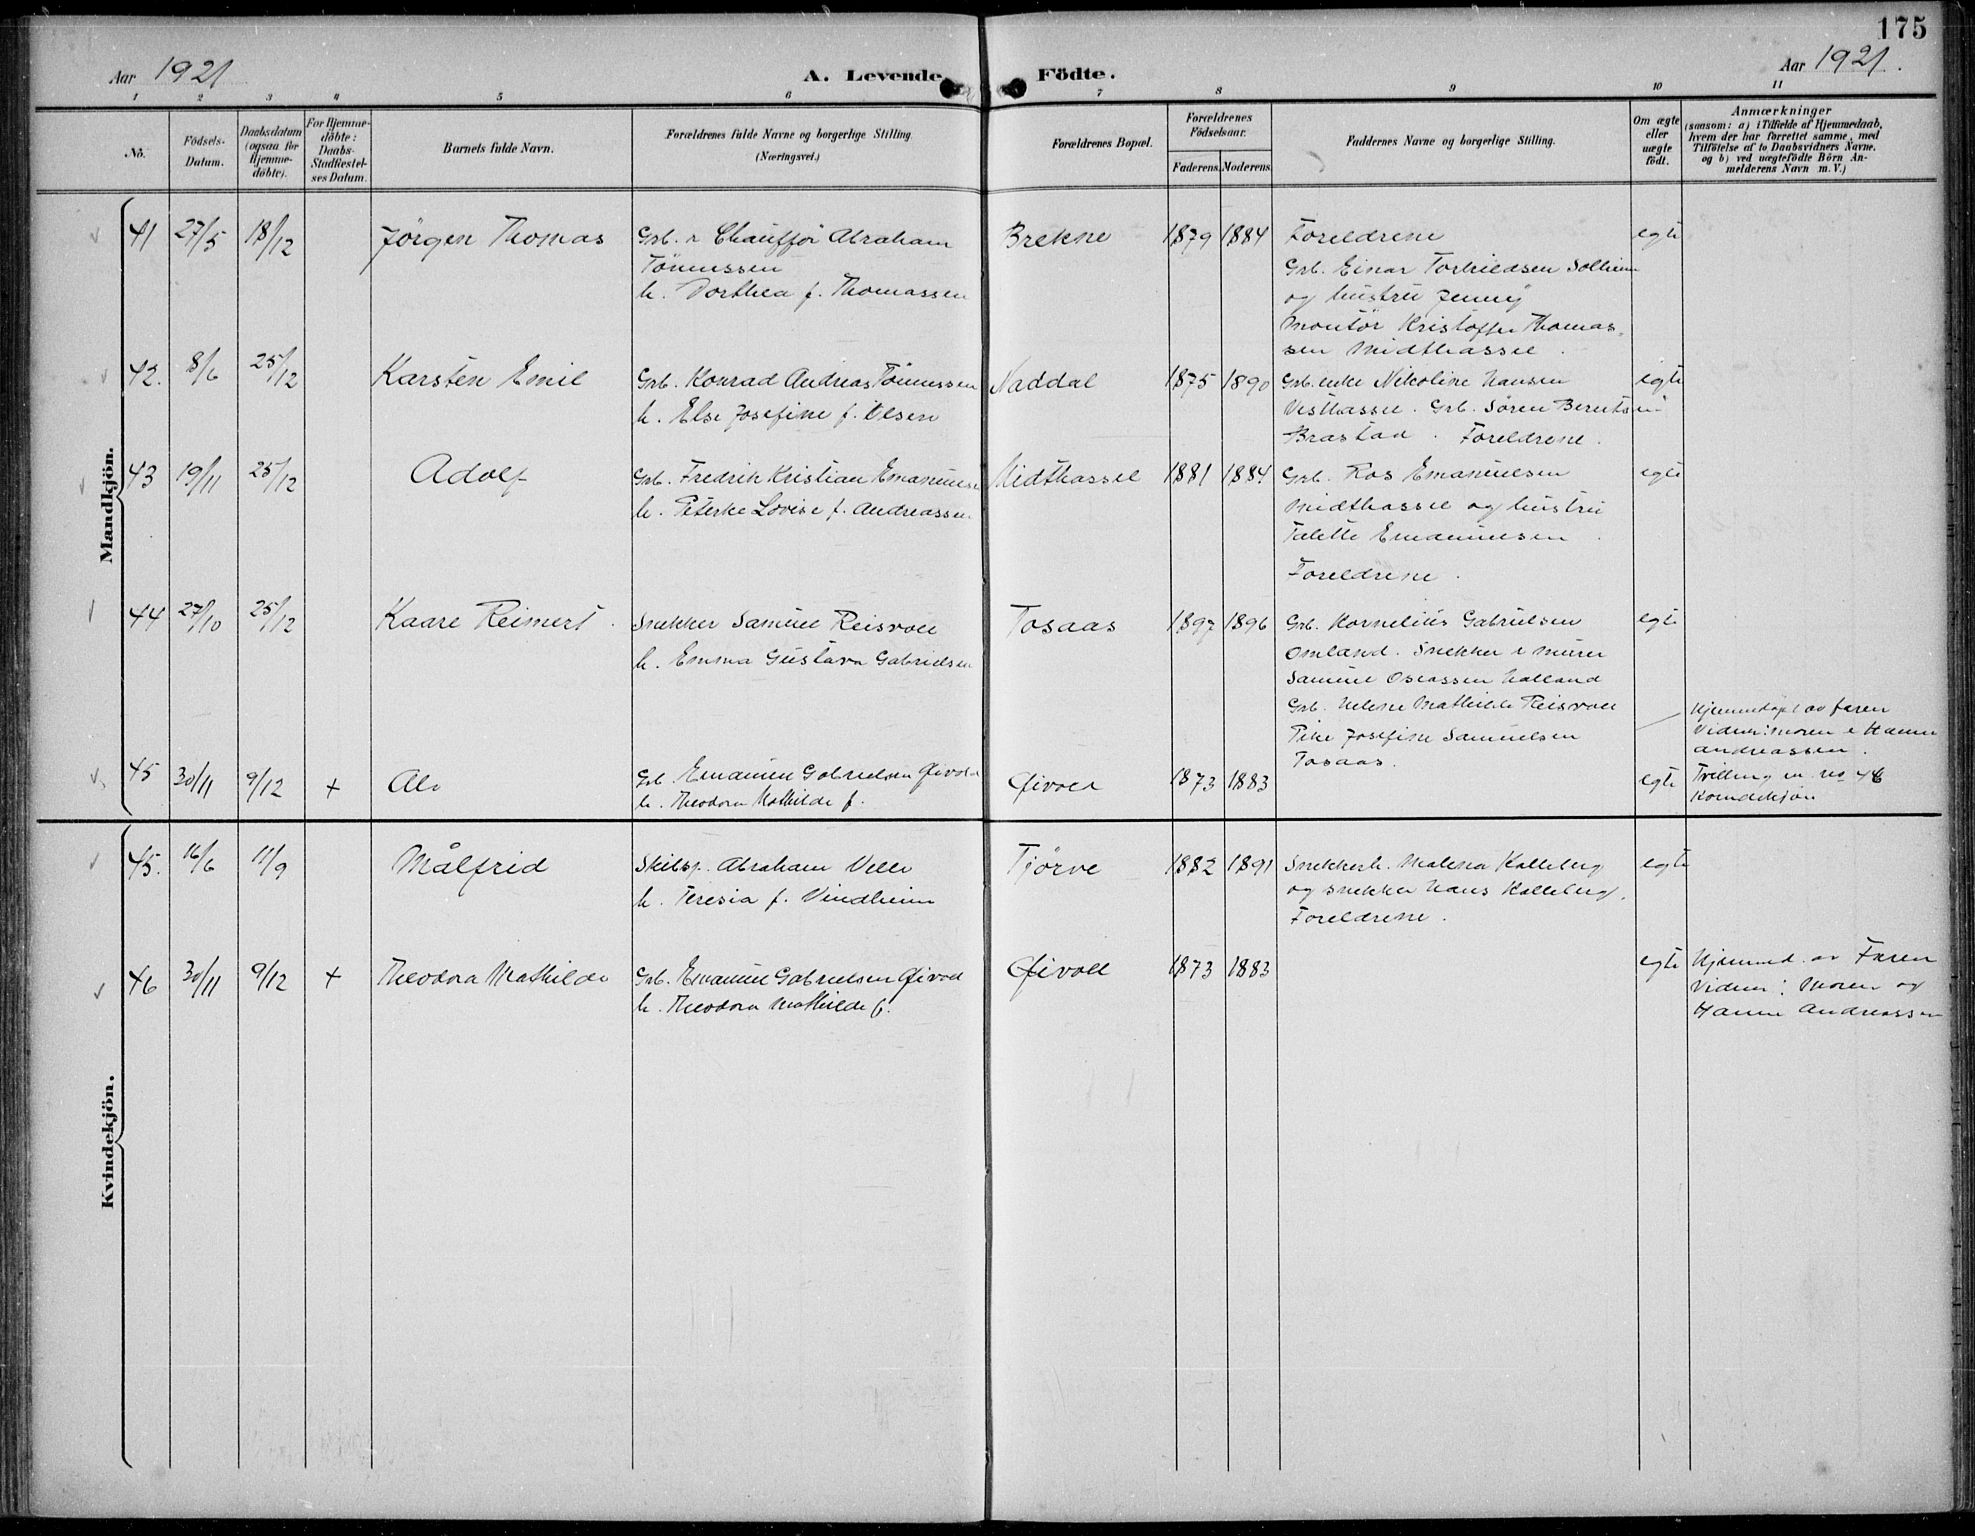 175
Aar 1921 A. Levende Födte. Aar 1921.
1 2 3 4 5 6 7 8 9 10 11
No. Födsels-Datum. Daabsdatum (ogsaa for Hjemme-döbte). For Hjemme-döbte: Daabs-Stadfæstel-ses Datum. Barnets fulde Navn. Forældrenes fulde Navne og borgerlige Stilling. (Næringsvei.) Forældrenes Bopæl. Forældrenes Födselsaar. Faderens. Moderens. Faddernes Navne og borgerlige Stilling. Om ægte eller uægte födt. Anmærkninger (saasom: a) i Tilfælde af Hjemmedaab, hvem der har forrettet samme, med Tilföielse af to Daabsvidners Navne, og b) ved uægtefödte Börn An-melderens Navn m. V.)
Mandkjön.
41 27/5 18/12 Jörgen Thomas Grb. & Chaufför Abraham Brekne 1879 1884 Foreldrene egte
Tönnessen Grb. Einar Torkildsen Solheim
h. Dorthea f. Thomassen og hustru Jenny
Montör Kristoffer Thomas-
sen Midthassel.
42. 8/6 25/12 Karsten Emil Grb. Konrad Andreas Tönnessen Naddal 1875 1890 Grb.enke Nikoline Hansen egte
h. Else Josefine f. Olsen Vesthassel. Grb. Sören Berntsen
Brastad. Foreldrene.
43 19/11 25/12 Adolf Grb. Fredrik Kristian Emanuelsen Midthassel 1881 1884 Grb. Emanuelsen egte
h. Peterke Lovise f. Andreassen Midthassel og hustru
Talette Emanuelsen.
Foreldrene.
44 27/10 25/12 Kaare Reimert. Snekker Samuel Reisvoll Tosaas 1897 1896 Grb. Kornelius Gabrielsen egte
h. Emma Gustava Gabrielsen Omland. Snekker & murer
Samuel Oseassen Halland
Grb. Helene Mathilde Reisvoll
Pike Josefine Samuelsen
Tosaas.
Hjemmedöpt av faren
Vidner: moren & Hanne
Andreassen.
45 30/11 9/12 + Alv Grb. Emanuel Gabrielsen Öivold Öivoll 1873 1883 egte Tvilling m. no 46
h. Theodora Mathilde f. Kvindekjön
Kvindekjön.
45. 16/6 11/9 Målfrid Skibsf. Abraham Velle Tjörve 1882 1891 Snekkerh. Malena Kalleberg egte
h. Teresia f. Vindheim og snekker Hans Kalleberg,
Foreldrene.
46 30/11 9/12 + Theodora Mathilde Grb. Emanuel Gabrielsen Öivold Öivoll 1873 1883 egte Hjemmed. av Faren
h. Theodora Mathilde f. Vidner: Moren og
Hanne Andreassen